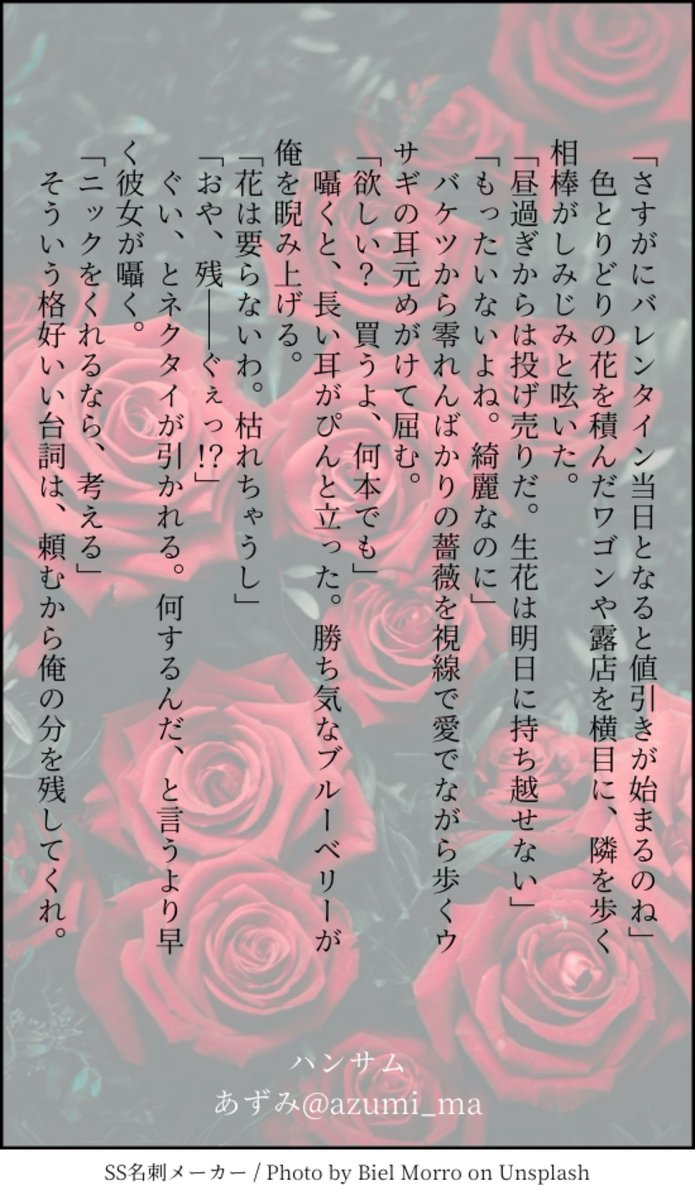 「さすがにバレンタイン当日となると値引きが始まるのね」
色とりどりの花を積んだワゴンや露店を横目に、隣を歩く
相棒がしみじみと呟いた。
「昼過ぎからは投げ売りだ。生花は明日に持ち越せない」
「もったいないよね。綺麗なのに」
バケツから零れんばかりの薔薇を視線で愛でながら歩くウ
サギの耳元めがけて屈む。
「欲しい？　買うよ、何本でも」
囁くと、長い耳がぴんと立った。勝ち気なブルーベリーが
俺を睨み上げる。
「花は要らないわ。枯れちゃうし」
「おや、残――ぐぇっ!?」
ぐい、とネクタイが引かれる。何するんだ、と言うより早
く彼女が囁く。
「ニックをくれるなら、考える」
そういう格好いい台詞は、頼むから俺の分を残してくれ。
ハンサム
あずみ@azumi_ma
SS名刺メーカー / Photo by Biel Morro on Unsplash